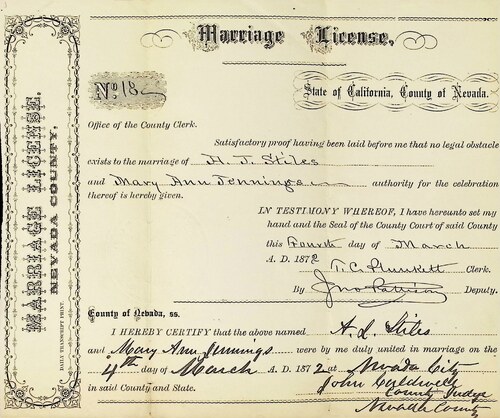 Marriage License,
No 18
State of California, County of Nevada.
Office of the County Clerk.
Satisfactory proof having been laid before me that no legal obstacle
exists to the marriage of H. J. Stiles
and Mary Ann Jennings authority for the celebration
thereof is hereby given.
IN TESTIMONY WHEREOF, I have hereunto set my
hand and the Seal of the County Court of said County
this Fourth day of March
A. D. 1872
T. C. Plunkett Clerk.
By Jno Pattison Deputy.
County of Nevada, ss.
I HEREBY CERTIFY that the above named A. L. Stiles
and Mary Ann Jennings were by me duly united in marriage on the
4th day of March A. D. 1872 at Nevada City
in said County and State. John Caldwell
County Judge
Nevada County
MARRIAGE LICENSE.
NEVADA COUNTY.
DAILY TRANSCRIPT PRINT.